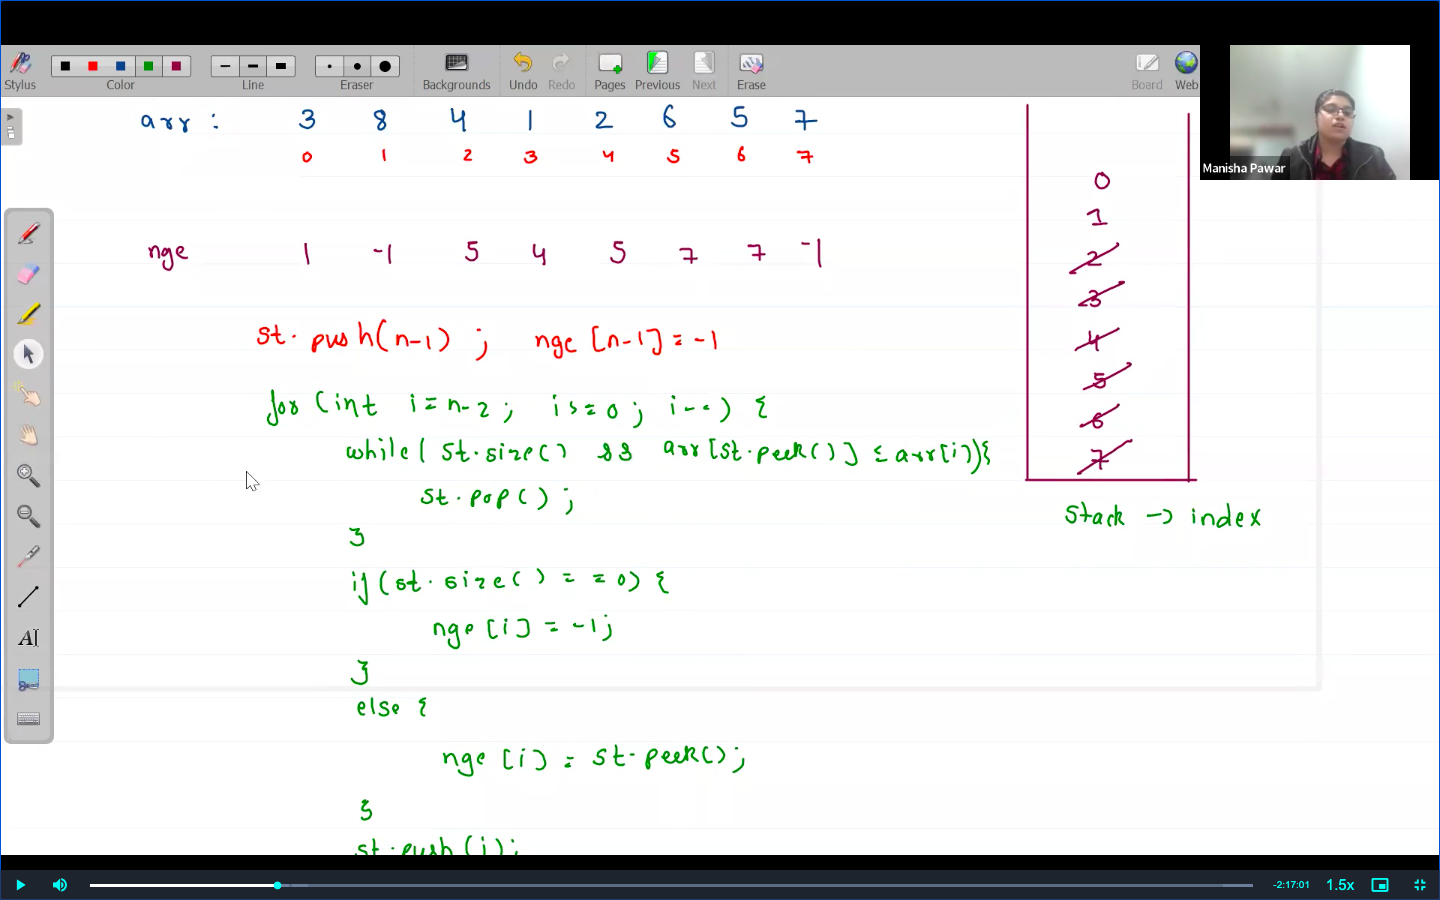 Stylus Color Line Eraser Backgrounds Undo Redo Pages Previous Next Erase Board Web
Manisha Pawar
arr : 3 8 4 1 2 6 5 7
0 1 2 3 4 5 6 7
nge 1 -1 5 4 5 7 7 -1
st.push(n-1) ; nge [n-1] = -1
for (int i = n-2 ; i >= 0 ; i--) {
while( st.size() && arr[st.peek()] ≤ arr[i]){
st.pop() ;
}
if (st.size() == 0) {
nge [i] = -1;
}
else {
nge [i] = st.peek();
}
st.push (i);
0
1
2
3
4
5
6
7
Stack -> index
AI
-2:17:01 1.5x